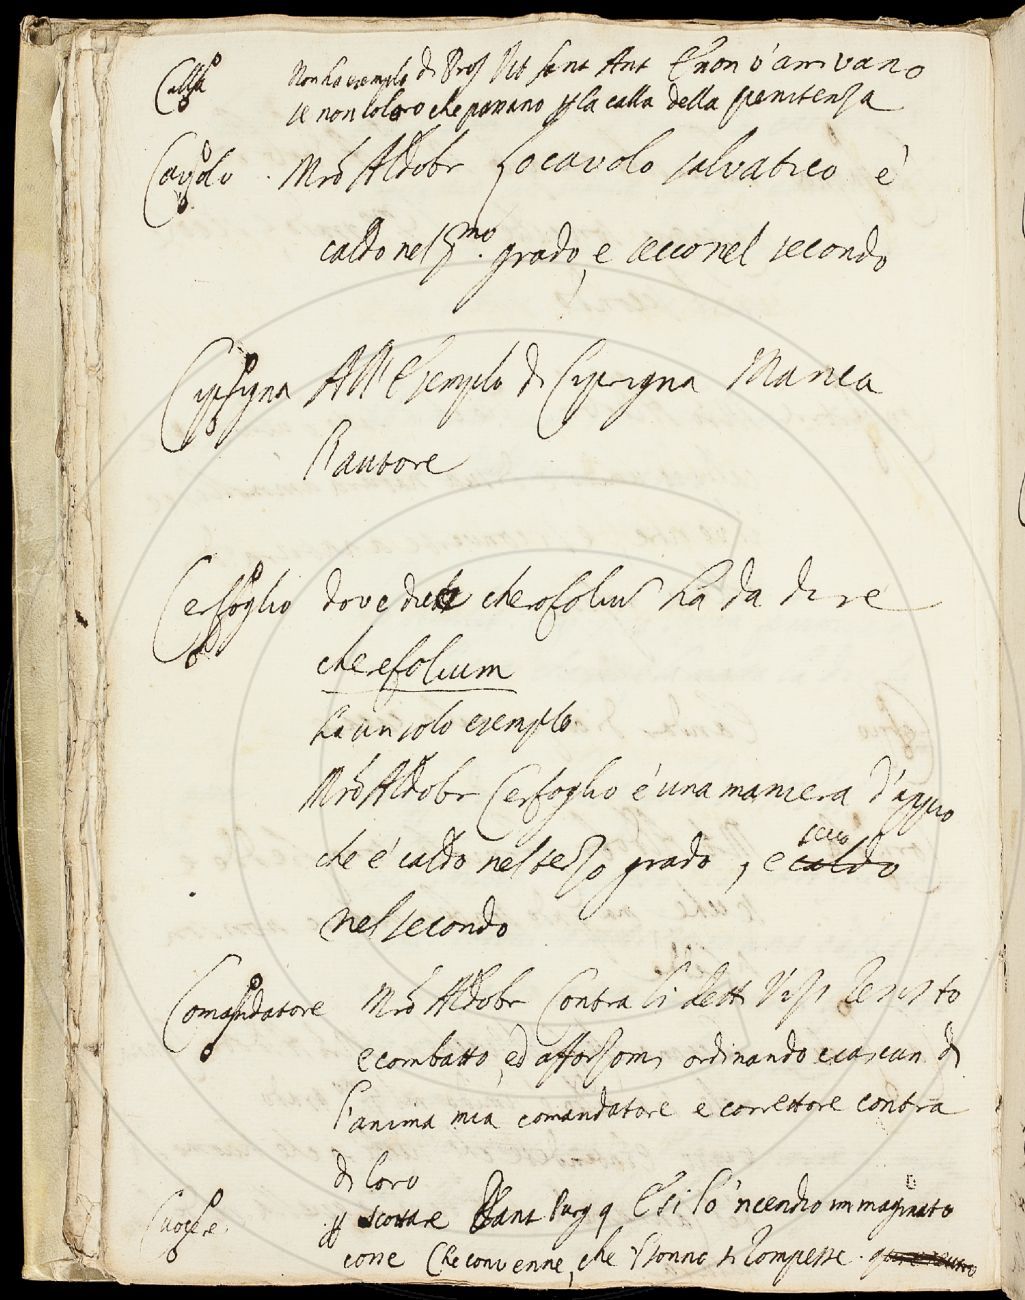 Calla Non ha esemplo di Pros Vit Sant Ant E non v'arrivano
se non coloro che passano p la calla della penitenza
Cavolo Mrō Aldobr Lo cavolo salvatico è
caldo nel pmo. grado, e secco nel secondo
Ciprigna All'Esemplo di Ciprigna Manca
l'autore
Cerfoglio dove dice cherofoliū ha da dire
cherefolium
ha un solo esemplo
Mrō Aldobr Cerfoglio è una maniera d'appio
che è caldo nel terzo grado, e caldo secco
nel secondo
Comandatore Mrō Aldobr Contra li detti resisto
e combatto, ed afforzomi ordinando ecascun dì
l'anima mia comandatore e correttore contra
di loro
Cuocere. p scottare Dant Purg 9 E sì lo 'ncendio immaginato
cosse Che convenne, che 'l sonno si rompesse.